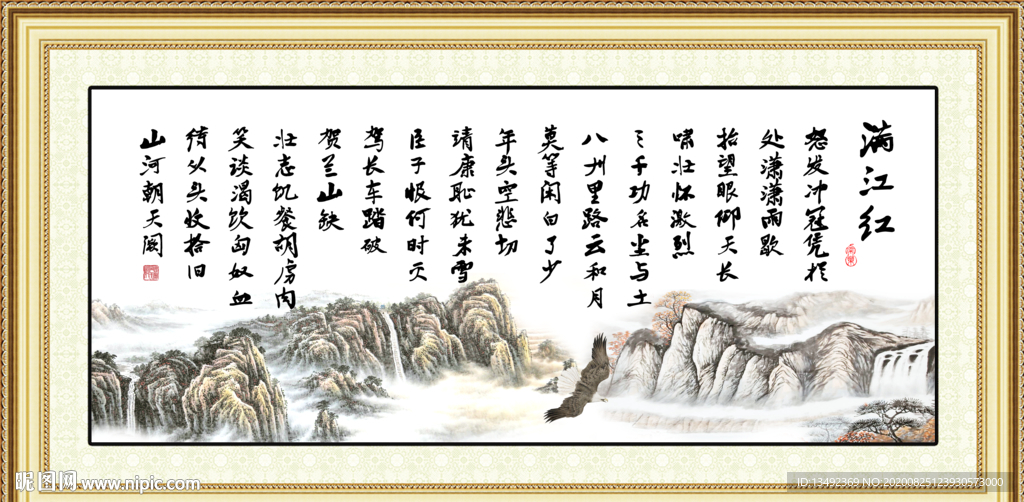 满江红
怒发冲冠凭栏
处潇潇雨歇
抬望眼仰天长
啸壮怀激烈
三千功名尘与土
八千里路云和月
莫等闲白了少
年头空悲切
靖康耻犹未雪
臣子恨何时灭
驾长车踏破
贺兰山缺
壮志饥餐胡虏肉
笑谈渴饮匈奴血
待从头收拾旧
山河朝天阙
昵图网 www.nipic.com
ID:13492369 NO:20200825123930573000